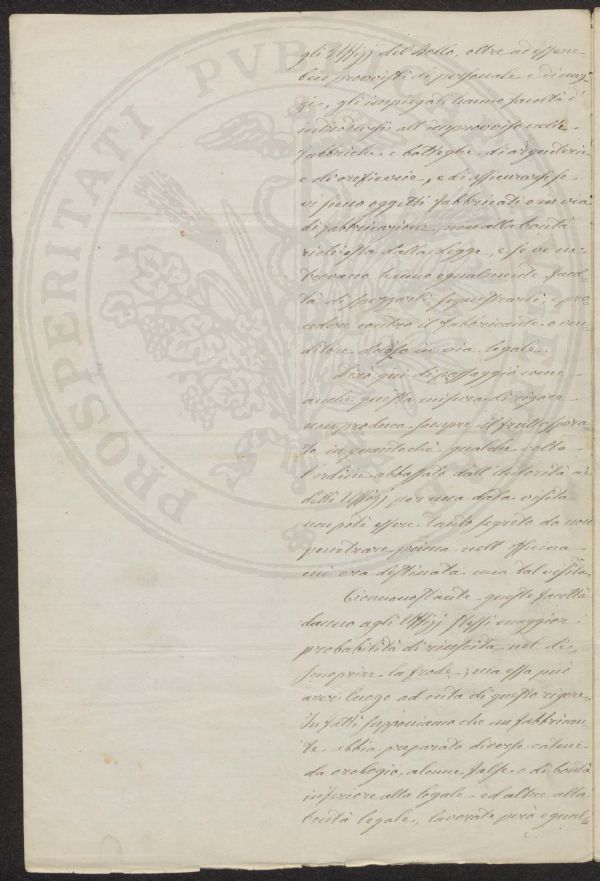 gli Uffizj del Bollo, oltre ad essere
ben provvisti di personale e di
gli impiegati hanno facoltà d'
introdursi all'improvviso nelle
fabbriche e botteghe di argenterie
e di oreficerie, e di assicurarsi se
vi sieno oggetti fabbricati o in via
di fabbricazione, non alla bontà
richiesta dalla Legge, e se ve ne
trovano hanno egualmente facol=
tà di spezzarli, sequestrarli, e pro
cedere contro il fabbricante o ven=
ditore doloso in via legale.
Dirò qui di passaggio come
anche questa misura di rigore
non produca sempre il frutto spera=
to in quantochè qualche volta
l'ordine abbassato dall'Autorità ai
detti Uffizj per una data visita
non potè essere tanto segreto da non
penetrare prima nell'officina
cui era destinata una tal visita.
Ciononostante queste facoltà
danno agli Uffizj stessi maggior
probabilità di riuscita nel di=
scuoprire la frode; ma essa può
aver luogo ad onta di questo rigore.
Infatti supponiamo che un fabbrican=
te abbia preparato diverse catene
da orologio, alcune false o di bontà
inferiore alla legale ed altre alla
bontà legale, lavorate però egual=
PROSPERITATI PUBLICAE